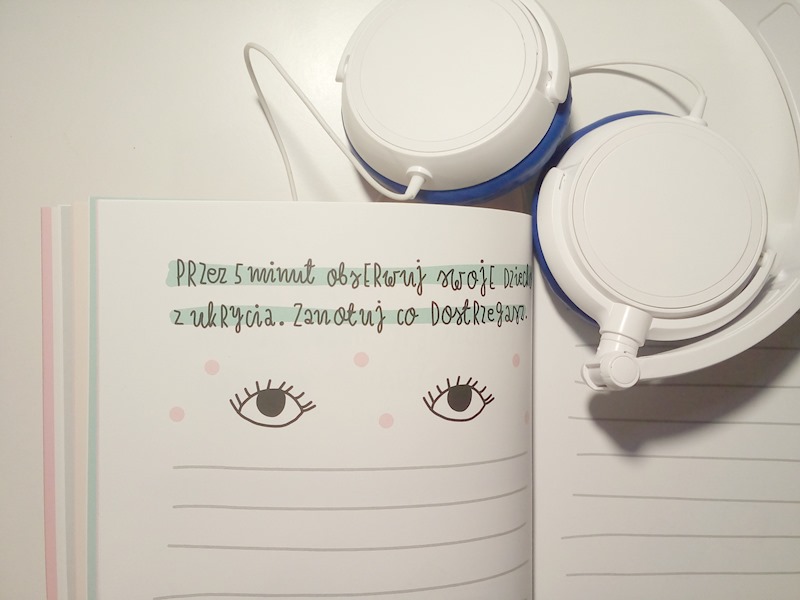 Przez 5 minut obserwuj swoje dziecko
z ukrycia. Zanotuj co dostrzegasz.